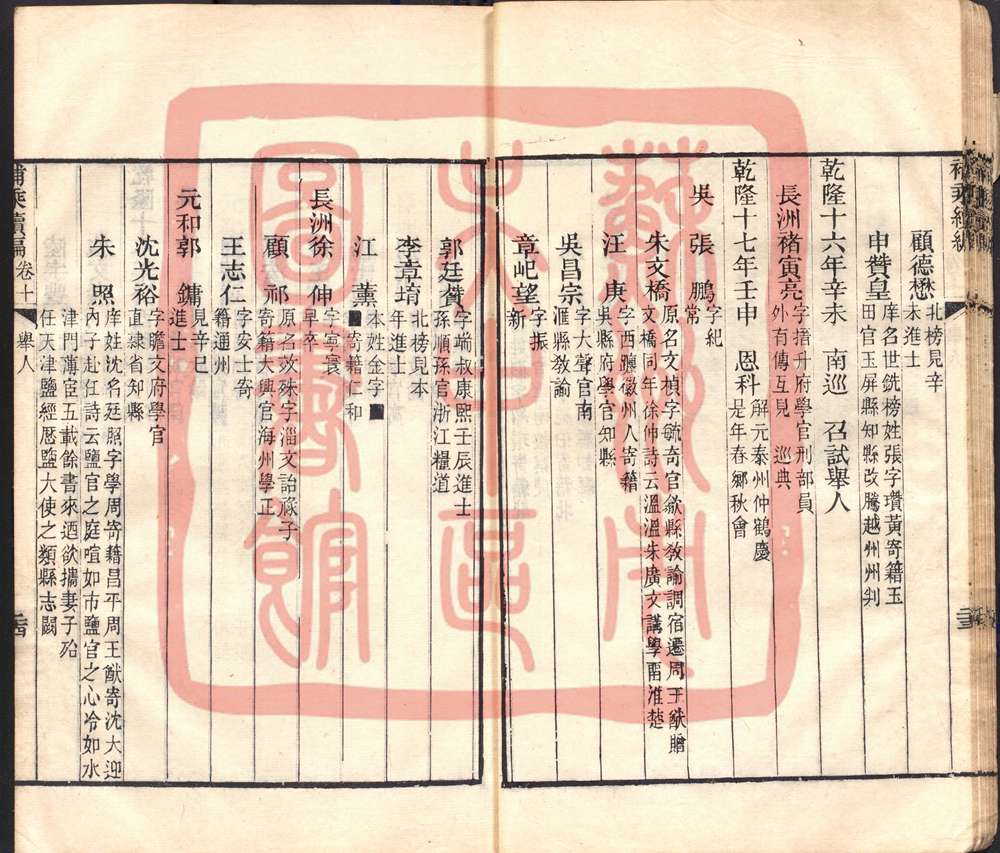 顧德懋 北榜見辛未進士
申贊皇 庠名世銑榜姓張字瓚黃寄籍玉田官玉屏縣知縣改騰越州州判
乾隆十六年辛未 南巡 召試舉人
長洲褚寅亮 字搢升府學官刑部員外有傳互見 巡典
乾隆十七年壬申 恩科 解元泰州仲鶴慶是年春鄉秋會
吳 張 鵬 字紀常
朱文橋 原名文楨字毓奇官歙縣教諭調宿遷周王猷贈文橋同年徐伸詩云溫溫朱廣文講學雷淮楚
汪 庚 字西䮽徽州人寄籍吳縣府學官知縣
吳昌宗 字大聲官南滙縣教諭
章屺望 字振新
郭廷贊 字端叔康熙壬辰進士孫順孫官浙江糧道
李章堉 北榜見本年進士
江 薰 本姓金字寄籍仁和
長洲徐 伸 字寧寰早卒
顧 祁 原名效殊字淄文詒祿子寄籍大興官海州學正
王志仁 字友士寄籍通州
元和郭 鏞 見辛巳進士
沈光裕 字瞻文府學官直隸省知縣
朱 照 庠姓沈名廷照字學周寄籍昌平周王猷寄沈大迎內子赴任詩云鹽官之庭喧如市鹽官之心冷如水津門薄宦五載餘書來迺欲攜妻子殆任天津鹽經歷鹽大使之類縣志闕
補乘續編 卷十 舉人